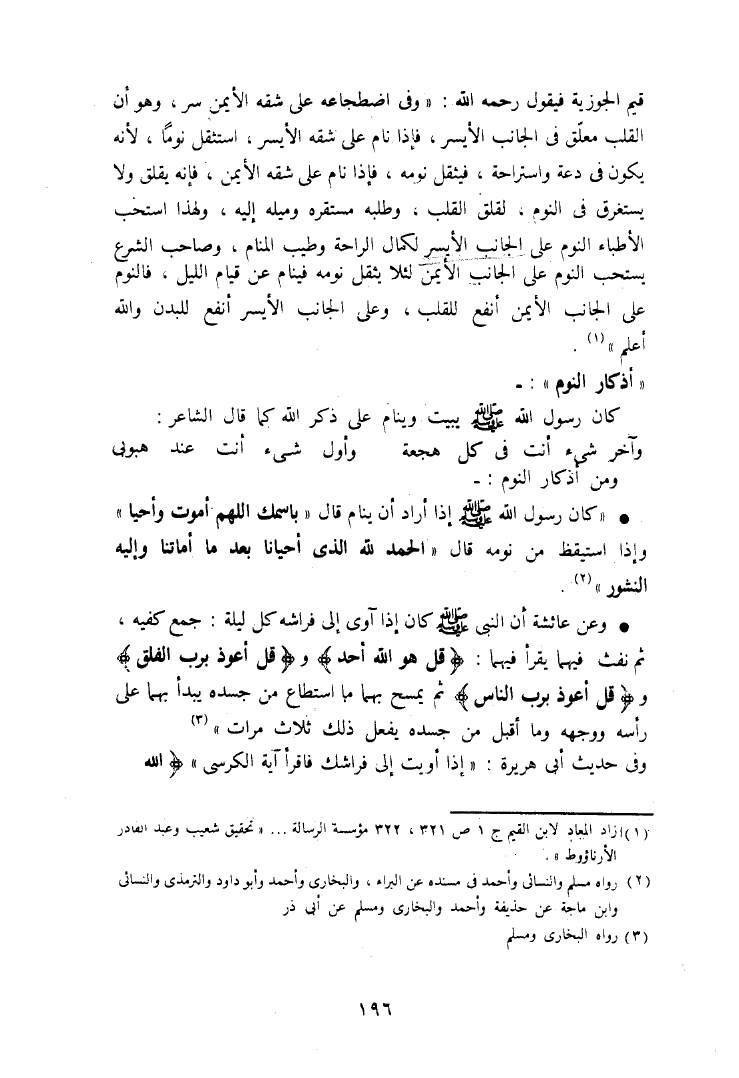 قيم الجوزية فيقول رحمه الله : « وفى اضطجاعه على شقه الأيمن سر ، وهو أن
القلب معلّق فى الجانب الأيسر ، فإذا نام على شقه الأيسر ، استثقل نومًا ، لأنه
يكون فى دعة واستراحة ، فيثقل نومه ، فإذا نام على شقه الأيمن ، فإنه يقلق ولا
يستغرق فى النوم ، لقلق القلب ، وطلبه مستقره وميله إليه ، ولهذا استحب
الأطباء النوم على الجانب الأيسر لكمال الراحة وطيب المنام ، وصاحب الشرع
يستحب النوم على الجانب الأيمن لئلا يثقل نومه فينام عن قيام الليل ، فالنوم
على الجانب الأيمن أنفع للقلب ، وعلى الجانب الأيسر أنفع للبدن والله
أعلم »(١) .
« أذكار النوم » : ـ
كان رسول الله ﷺ يبيت وينام على ذكر الله كما قال الشاعر :
وآخر شىء أنت فى كل هجعة وأول شىء أنت عند هبوبى
ومن أذكار النوم : ـ
● « كان رسول الله ﷺ إذا أراد أن ينام قال « باسمك اللهم أموت وأحيا »
وإذا استيقظ من نومه قال « الحمد لله الذى أحيانا بعد ما أماتنا وإليه
النشور »(٢) .
● وعن عائشة أن النبى ﷺ كان إذا آوى إلى فراشه كل ليلة : جمع كفيه ،
ثم نفث فيهما يقرأ فيهما : ﴿ قل هو الله أحد ﴾ و ﴿ قل أعوذ برب الفلق ﴾
و ﴿ قل أعوذ برب الناس ﴾ ثم يمسح بهما ما استطاع من جسده يبدأ بهما على
رأسه ووجهه وما أقبل من جسده يفعل ذلك ثلاث مرات »(٣)
وفى حديث أبى هريرة : « إذا أويت إلى فراشك فاقرأ آية الكرسى » ﴿ الله
(١) زاد المعاد لابن القيم ج ١ ص ٣٢١ ، ٣٢٢ مؤسسة الرسالة ... « تحقيق شعيب وعبد القادر
الأرناؤوط » .
(٢) رواه مسلم والنسائى وأحمد فى مسنده عن البراء ، والبخارى وأحمد وأبو داود والترمذى والنسائى
وابن ماجة عن حذيفة وأحمد والبخارى ومسلم عن أبى ذر
(٣) رواه البخارى ومسلم
١٩٦